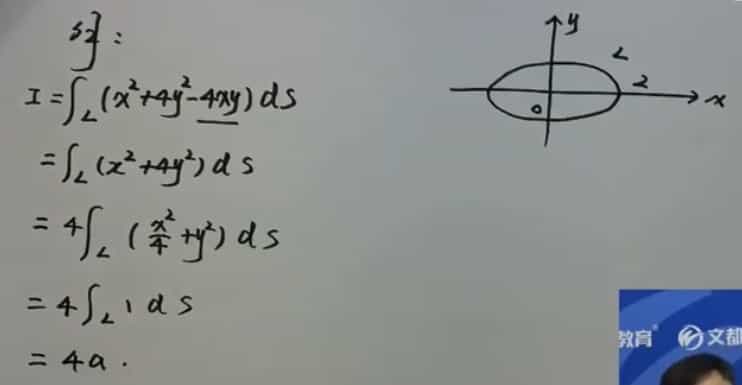 解:
I = ∫_L (x²+4y²-4xy) ds
= ∫_L (x²+4y²) ds
= 4∫_L (x²/4+y²) ds
= 4∫_L 1 ds
= 4a.
y
L
2
x
0
教育 文都